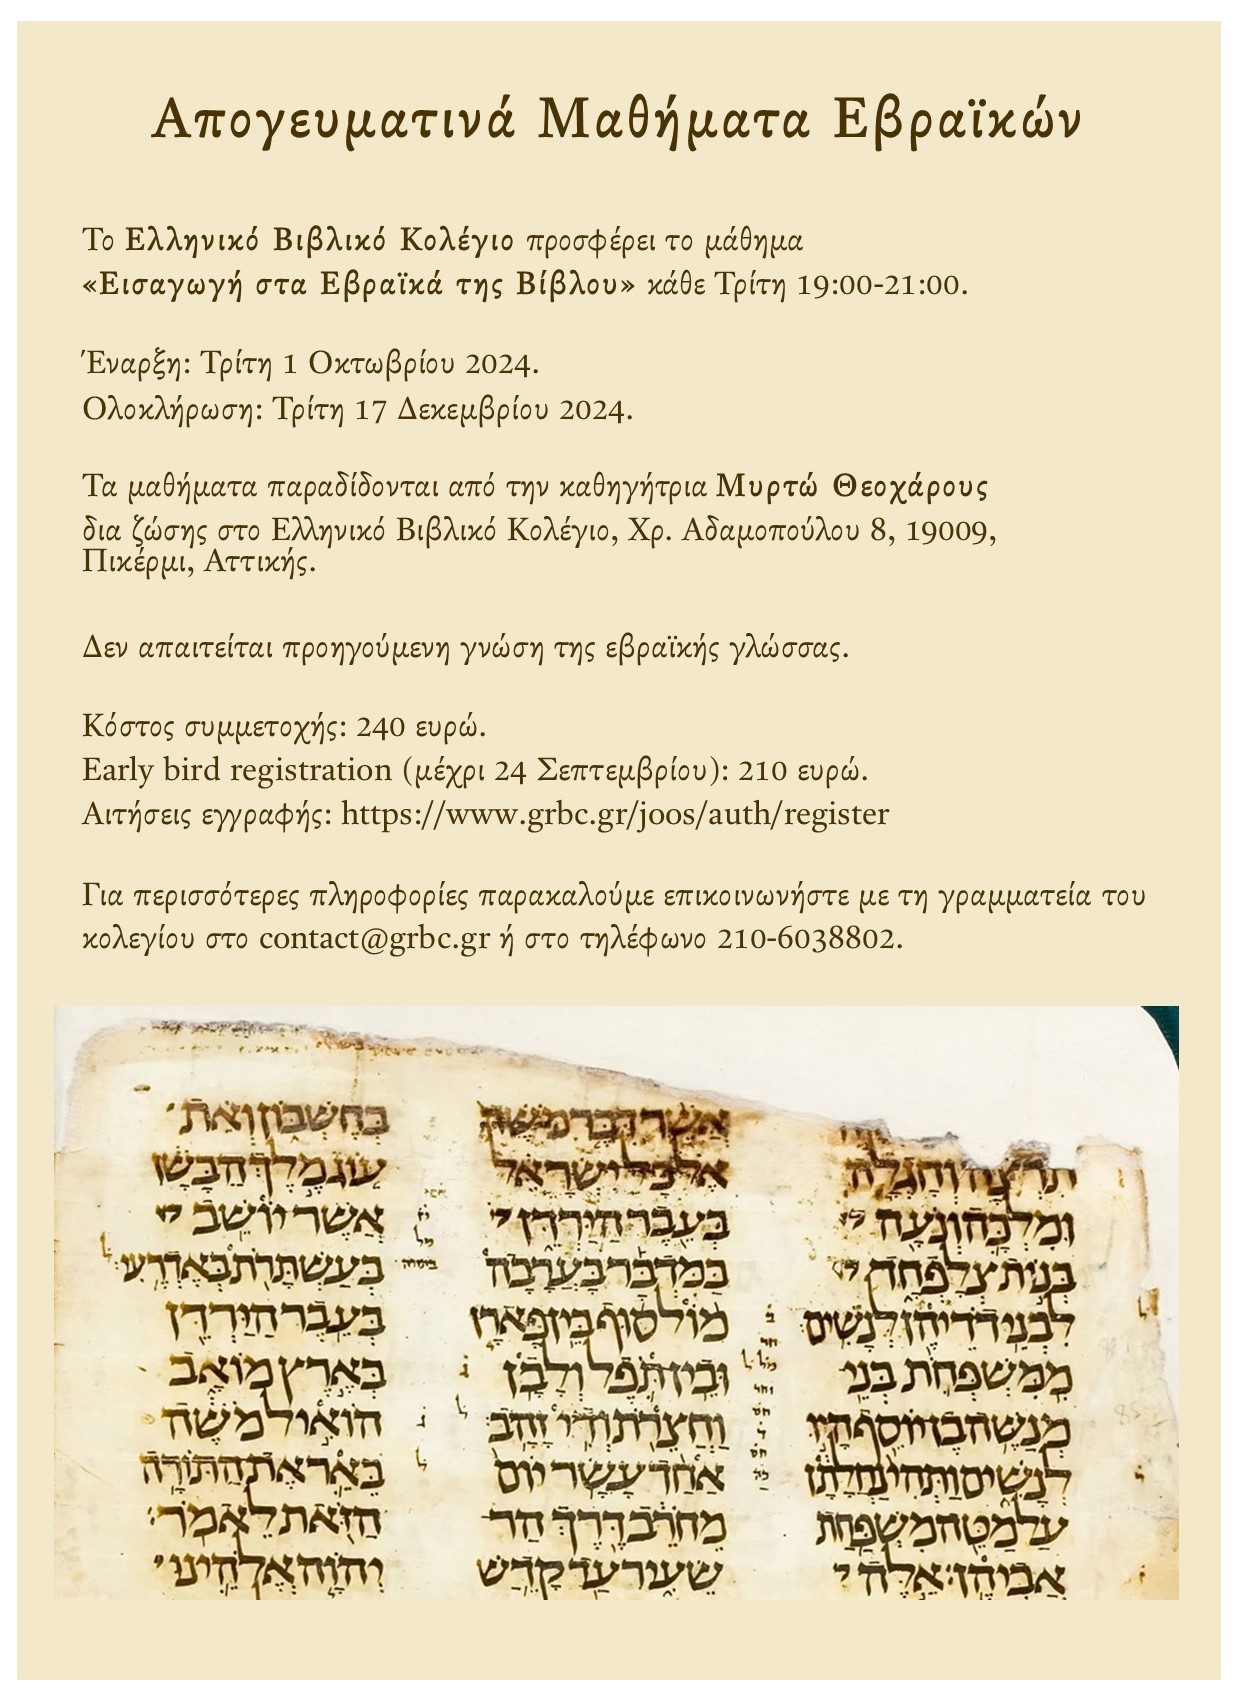 Απογευματινά Μαθήματα Εβραϊκών
Το Ελληνικό Βιβλικό Κολέγιο προσφέρει το μάθημα
«Εισαγωγή στα Εβραϊκά της Βίβλου» κάθε Τρίτη 19:00-21:00.
Έναρξη: Τρίτη 1 Οκτωβρίου 2024.
Ολοκλήρωση: Τρίτη 17 Δεκεμβρίου 2024.
Τα μαθήματα παραδίδονται από την καθηγήτρια Μυρτώ Θεοχάρους
δια ζώσης στο Ελληνικό Βιβλικό Κολέγιο, Χρ. Αδαμοπούλου 8, 19009,
Πικέρμι, Αττικής.
Δεν απαιτείται προηγούμενη γνώση της εβραϊκής γλώσσας.
Κόστος συμμετοχής: 240 ευρώ.
Early bird registration (μέχρι 24 Σεπτεμβρίου): 210 ευρώ.
Αιτήσεις εγγραφής: https://www.grbc.gr/joos/auth/register
Για περισσότερες πληροφορίες παρακαλούμε επικοινωνήστε με τη γραμματεία του
κολεγίου στο contact@grbc.gr ή στο τηλέφωνο 210-6038802.
תרצה וחגלה
ומלכה ונעה
בנות צלפחד
לבני דדיהן לנשים
ממשפחת בני
מנשה בן יוסף היו
לנשים ותהי נחלתן
על מטה משפחת
אביהן אלה
אשר דבר משה
אל כל ישראל
בעבר הירדן
במדבר בערבה
מול סוף בין פארן
ובין תפל ולבן
וחצרת ודי זהב
אחד עשר יום
מחרב דרך הר
שעיר עד קדש
בחשבון ואת
עוג מלך הבשן
אשר יושב
בעשתרת באדרעי
בעבר הירדן
בארץ מואב
הואיל משה
באר את התורה
הזאת לאמר
יהוה אלהינו